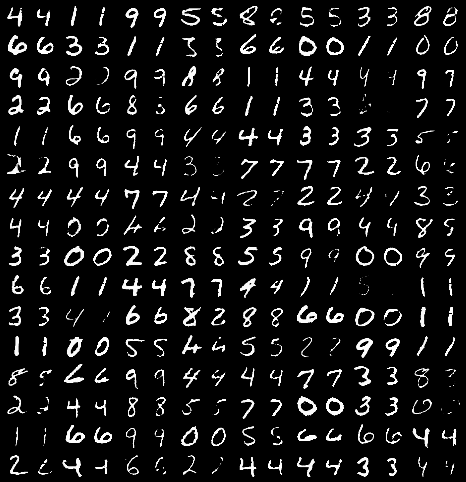 4 4 1 1 9 9 5 5 8 5 5 3 3 8 8
6 6 3 3 1 1 3 3 6 6 0 0 1 1 0 0
9 9 2 2 9 9 8 8 1 1 4 4 4 9 9
2 2 6 6 8 8 6 6 1 1 3 3 7 7
1 1 6 6 9 9 4 4 4 4 3 3 3 3 5
2 2 9 9 4 4 3 7 7 7 7 2 2 6 6
4 4 4 4 7 7 4 4 2 2 2 2 4 4 3 3
4 4 0 0 4 6 2 2 3 3 9 9 4 4 8 5
3 3 0 0 2 2 8 8 5 5 9 9 0 0 9 9
6 6 1 1 4 4 7 7 4 4 1 1 5 1 1
3 3 4 6 6 8 2 8 8 6 6 0 0 1 1
1 1 0 0 5 5 4 4 5 5 2 2 9 9 1 1
8 6 6 9 9 4 4 4 4 7 7 3 3 8 3
2 2 4 4 8 8 5 5 7 7 0 0 3 3 0 0
1 1 6 6 9 9 0 0 5 5 6 6 6 6 4 4
2 4 4 6 6 2 2 4 4 4 4 3 3 4 4